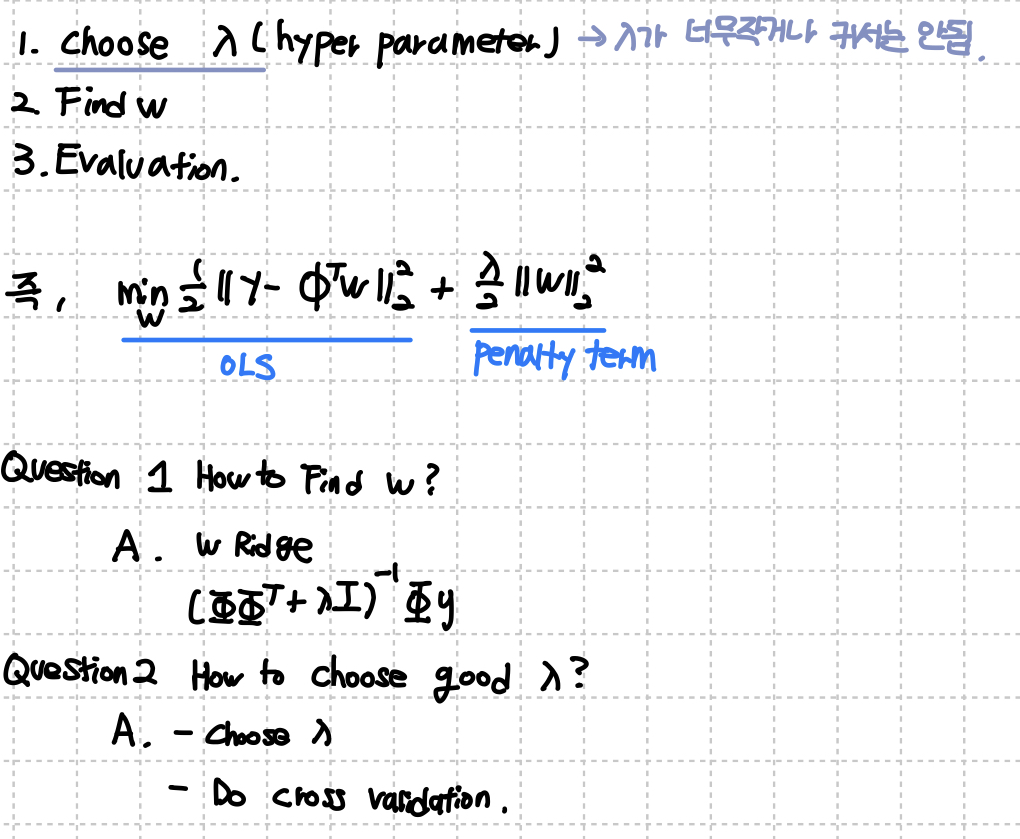 1. choose λ (hyper parameter) → λ가 너무작거나 커서는 안됨.
2. Find w
3. Evaluation.
즉, min_w 1/2 ||y - Φᵀw||₂² + λ/2 ||w||₂²
OLS penalty term
Question 1 How to Find w?
A. w Ridge
(ΦΦᵀ + λI)⁻¹ Φy
Question 2 How to choose good λ?
A. - choose λ
- Do cross validation.